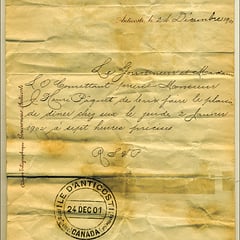 Anticosti, le 24 Décembre 190
Le Gouverneur et Madame
L. O. Comettant prient Monsieur
J. Henri Paquet de leur faire le plaisir
de dîner chez eux le jeudi 2 Janvier
1902 à sept heures précises
R.S.V.P
ILE D'ANTICOSTI
24 DEC 01
CANADA